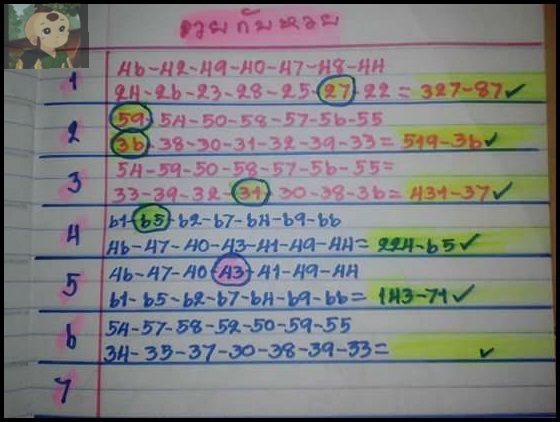 รวยกับหวย
1
46-42-49-40-47-48-44
24-26-23-28-25-27-22 = 327-87✓
2
59-54-50-58-57-56-55
36-38-30-31-32-39-33 = 519-36✓
3
54-59-50-58-57-56-55=
33-39-32-31-30-38-36= 431-37✓
4
61-65-62-67-64-69-66
46-47-40-43-41-49-44= 224-65✓
5
46-47-40-43-41-49-44
61-65-62-67-64-69-66= 143-71✓
6
54-57-58-52-50-59-55
34-35-37-30-38-39-33= ✓
7